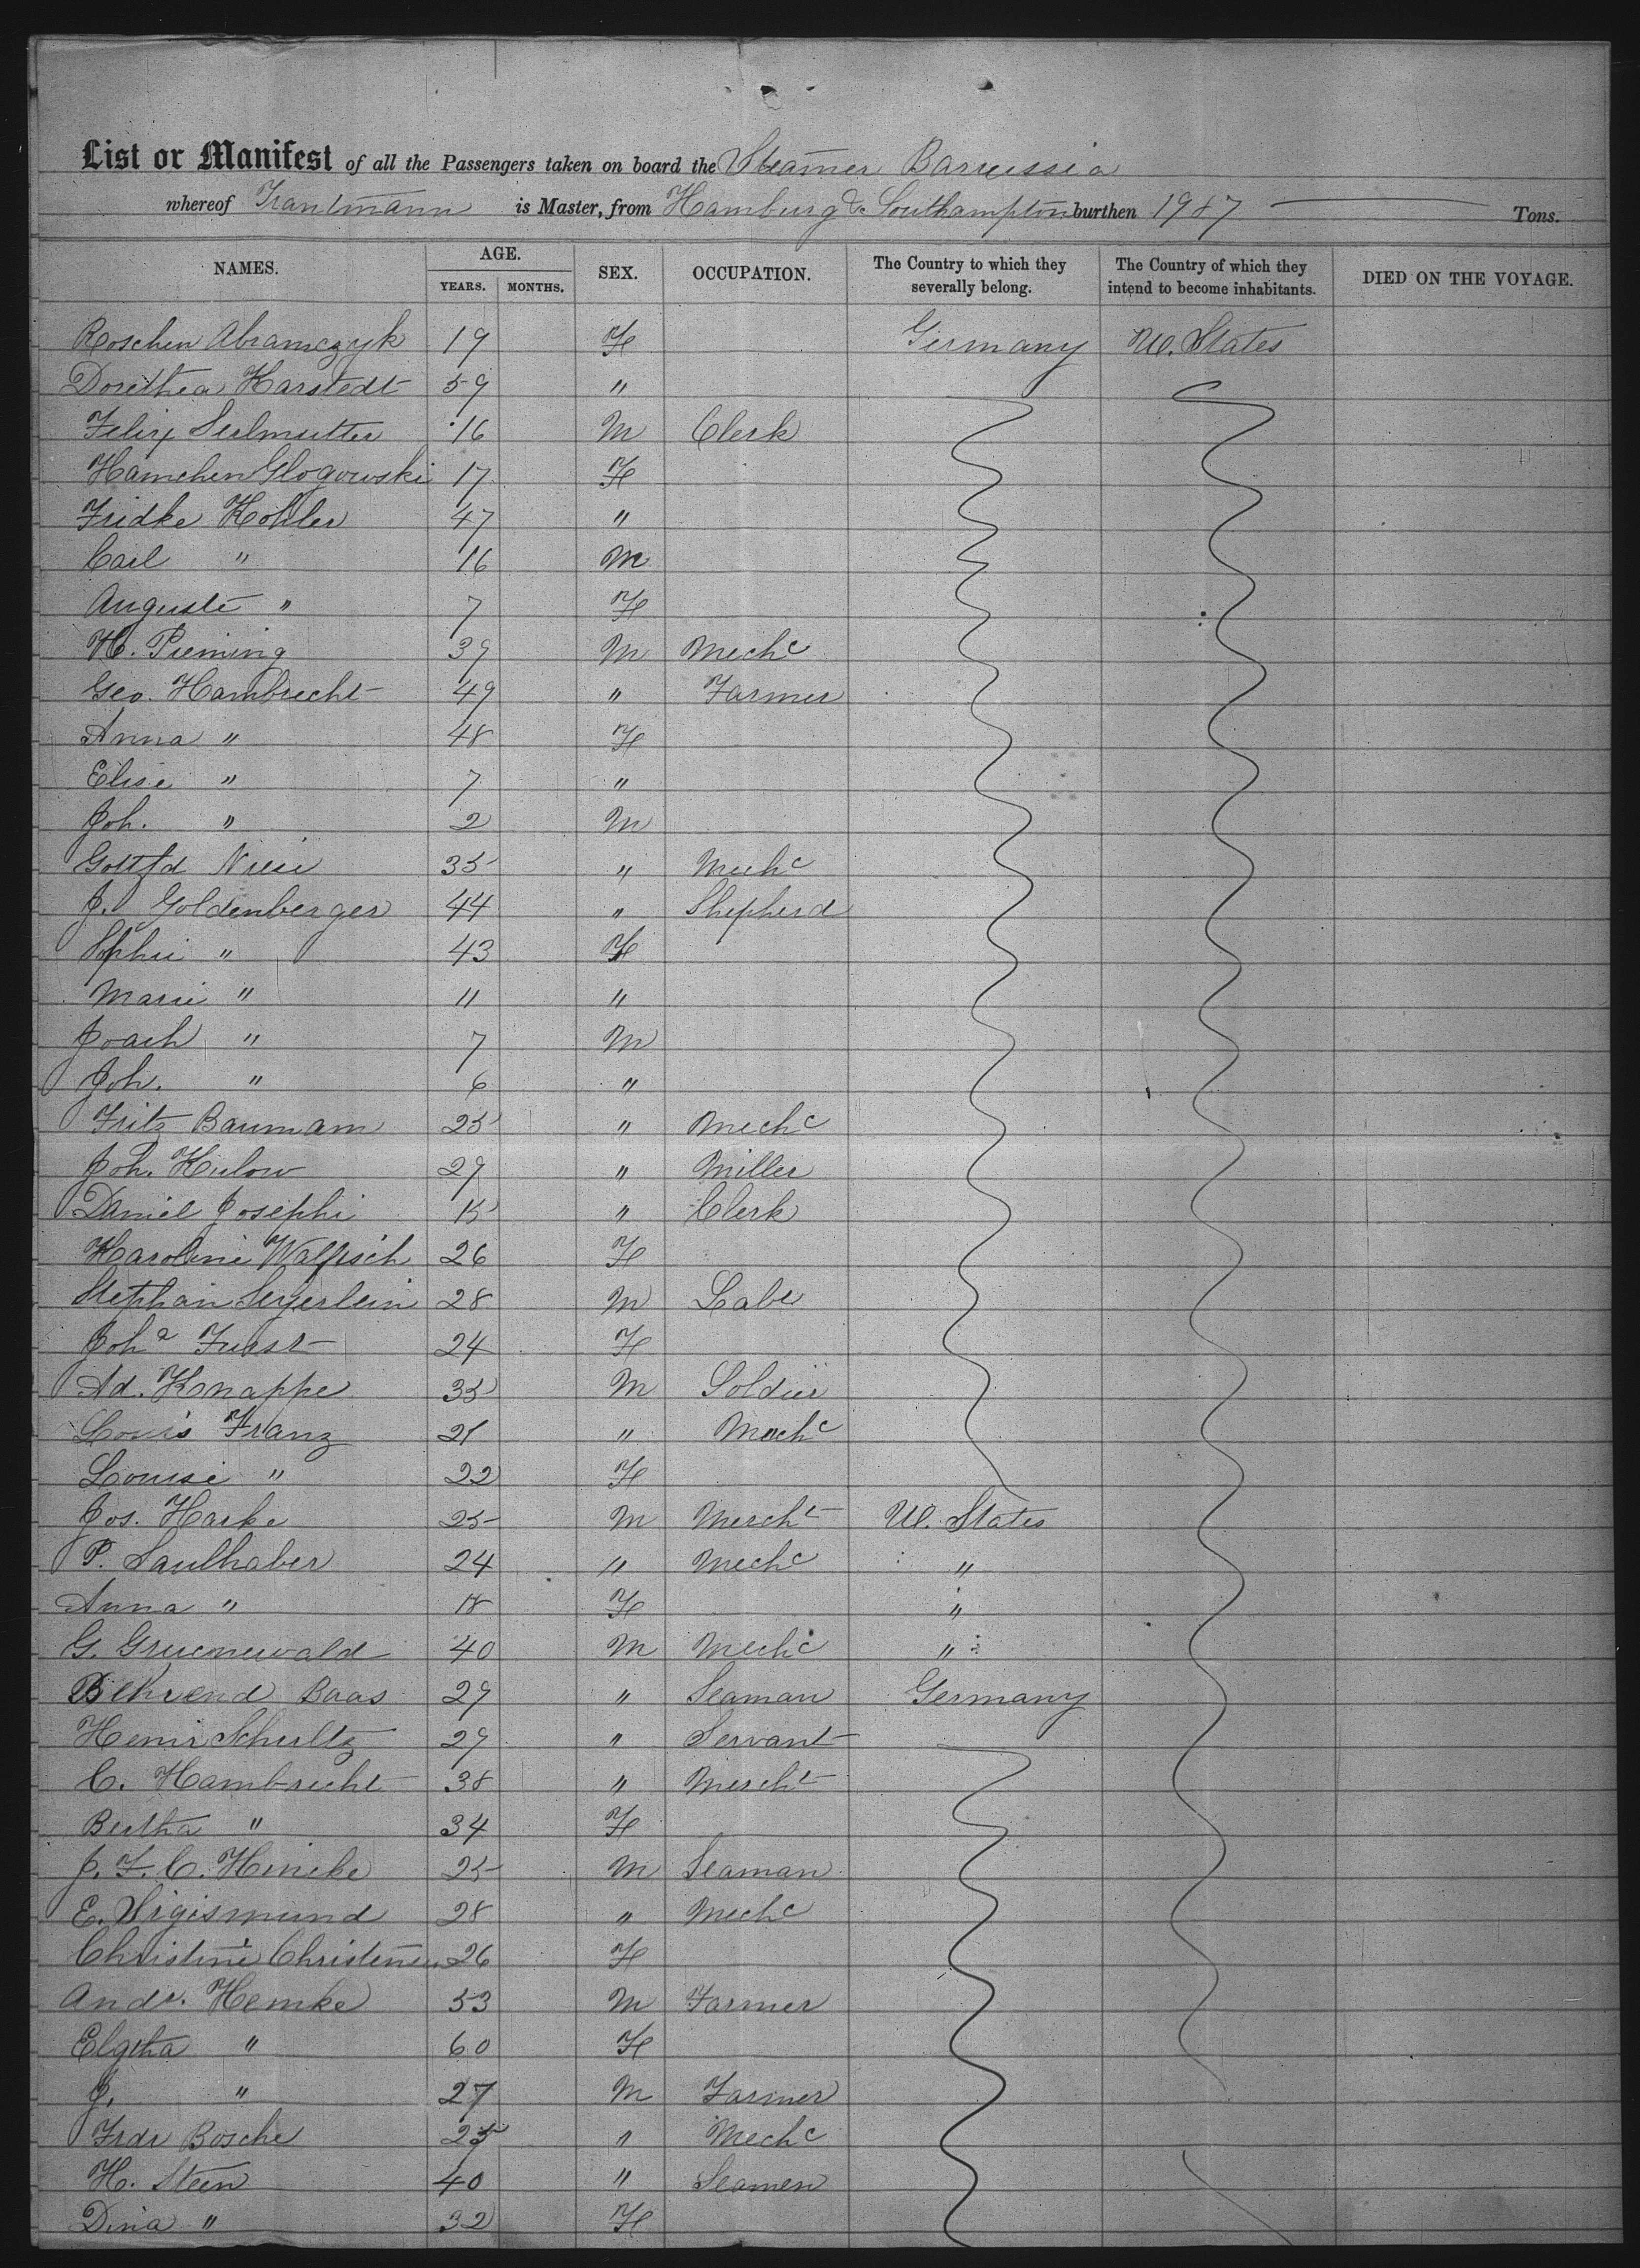 List or Manifest of all the Passengers taken on board the Steamer Barussia
whereof Trautmann is Master, from Hamburg & Southampton burthen 1987 Tons.
NAMES. AGE. YEARS. MONTHS. SEX. OCCUPATION. The Country to which they severally belong. The Country of which they intend to become inhabitants. DIED ON THE VOYAGE.
Roschen Abramczyk 19 F Germany U. States
Dorithea Harstedt 59 "
Felix 16 M Clerk
Hamchen Glogowski 17 F
Fridke Kohler 47 "
Carl " 16 M
Auguste " 7 F
H. Piening 39 M Mechc
Geo. Hambrecht 49 " Farmer
Anna " 48 F
Elise " 7 "
Joh. " 2 M
Gottfd 35 " Mechc
J. Goldenberger 44 " Shepherd
Sophie " 43 F
Marie " 11 "
Joach " 7 M
Joh. " 6 "
Fritz Baumann 25 " Mechc
Joh. Kulow 29 " Miller
Daniel Josephi 15 " Clerk
Karoline Walfisch 26 F
Stephan Seyerlein 28 M Labr
Joha Fuerst 24 F
Ad. Knappe 35 M Soldier
Louis Franz 21 " Mechc
Louise " 22 F
Jos. Harke 25 M Mercht U. States
P. Saulhaber 24 " Mechc "
Anna " 18 F "
G. Gruenewald 40 M Mechc "
Behrend Baas 29 " Seaman Germany
Henri Schultz 29 " Servant
C. Hambrecht 38 " Mercht
Bertha " 34 F
J. F. C. Heincke 25 M Seaman
E. Sigismund 28 " Mechc
Christine 26 F
Andr. Hemke 53 M Farmer
Elgtha " 60 F
J. " 27 M Farmer
Frdr Bosche 25 " Mechc
H. Steen 40 " Seamen
Dina " 32 F